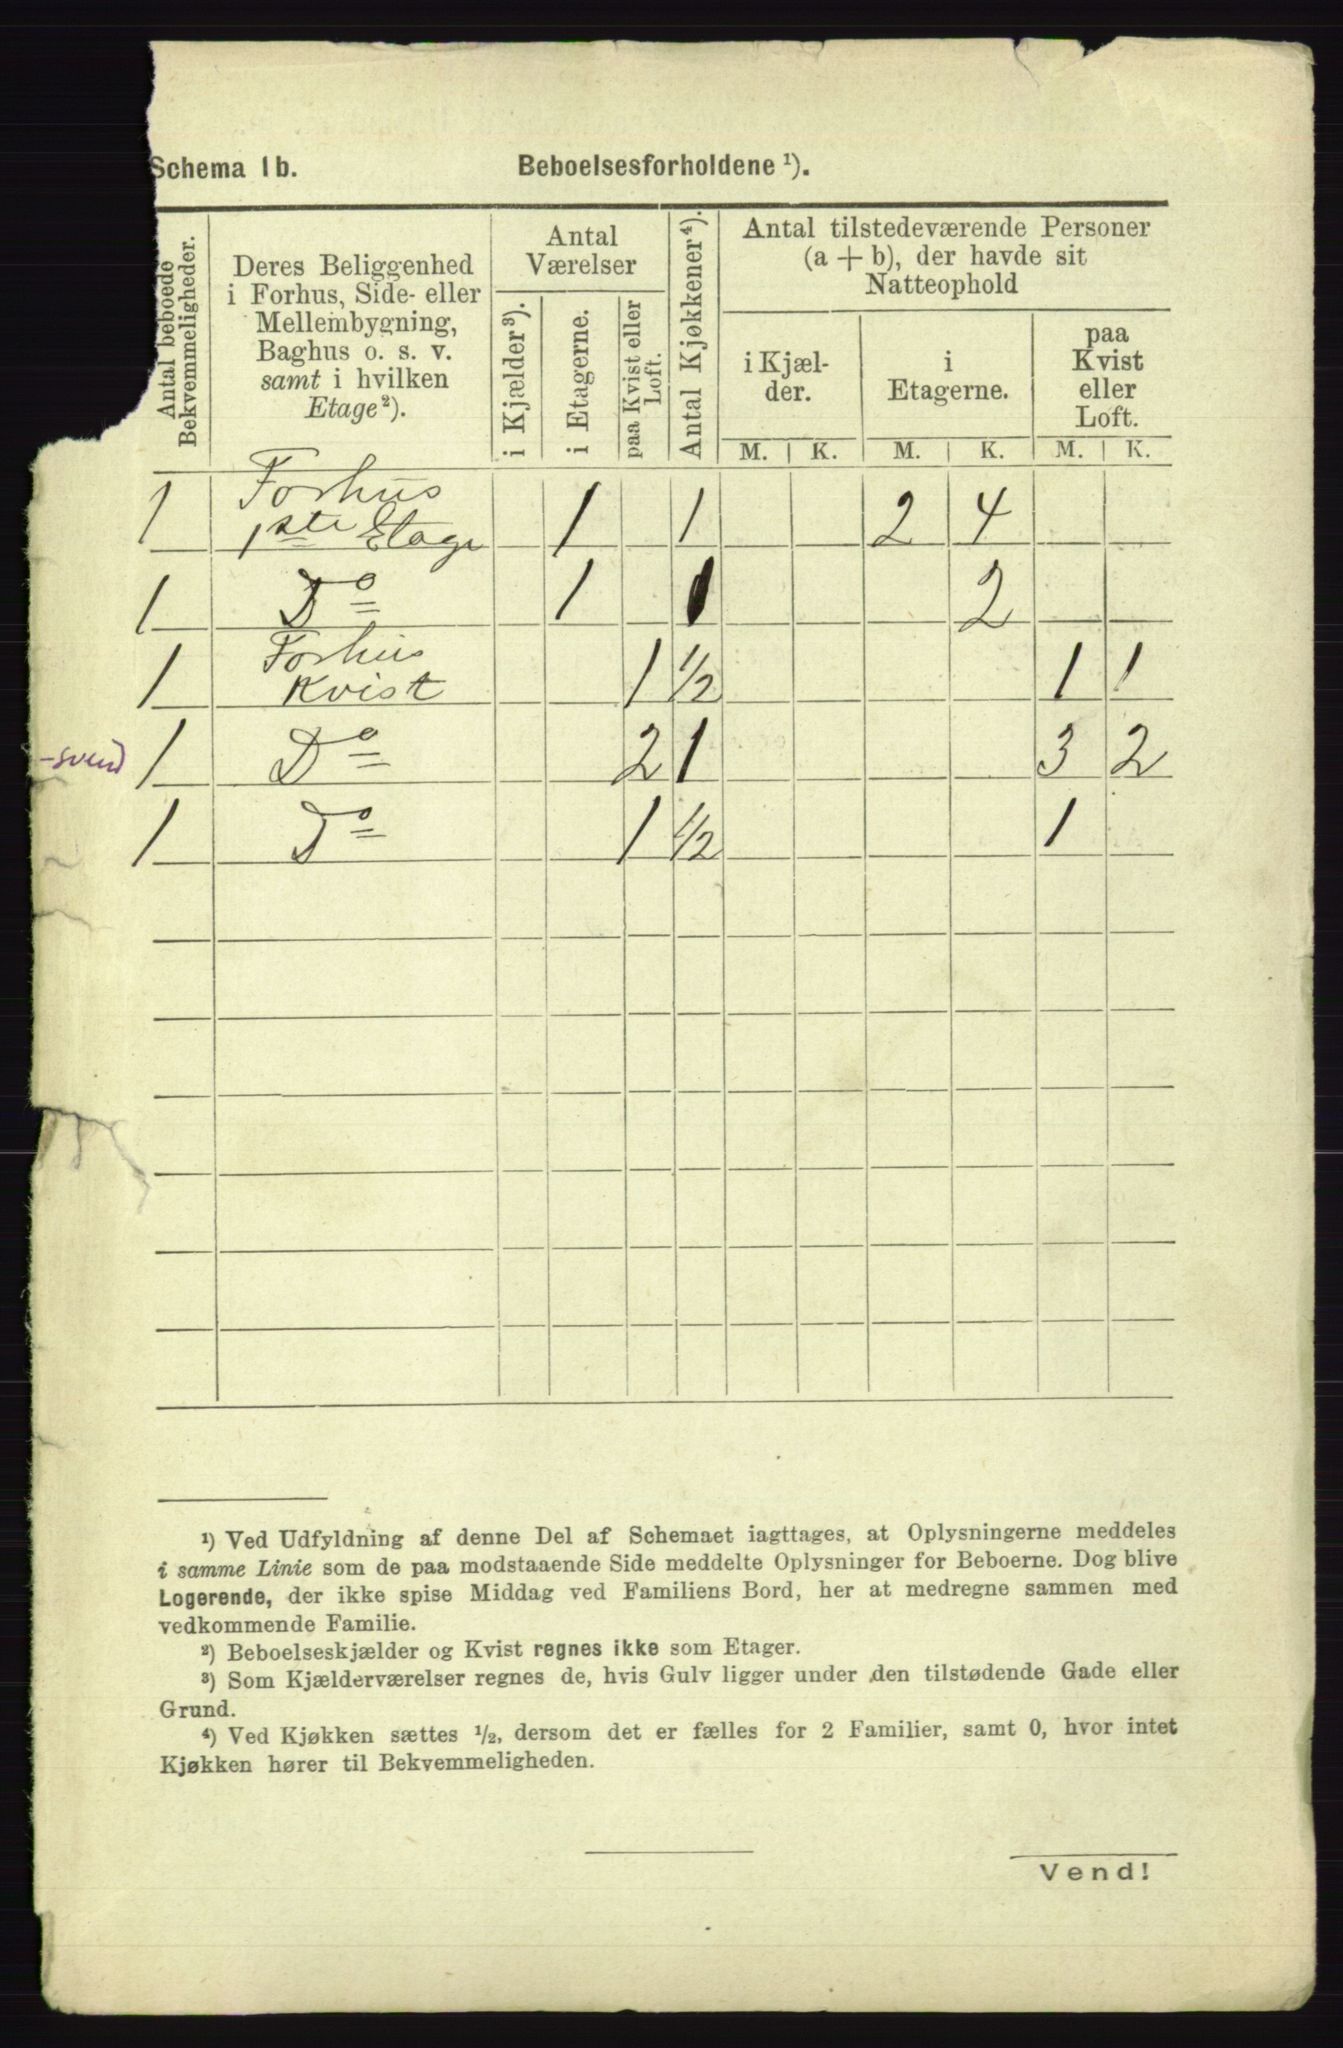 Schema 1b. Beboelsesforholdene ¹).
Antal beboede Bekvemmeligheder.
Deres Beliggenhed
i Forhus, Side- eller
Mellembygning,
Baghus o. s. v.
samt i hvilken
Etage²).
Antal
Værelser
i Kjælder³).
i Etagerne.
paa Kvist eller Loft.
Antal Kjøkkener⁴).
Antal tilstedeværende Personer
(a + b), der havde sit
Natteophold
i Kjæl-
der.
i
Etagerne.
paa
Kvist
eller
Loft.
M. K. M. K. M. K.
Forhus
1 1ste Etage 1 1 2 4
1 Do 1 1 2
Forhus
1 Kvist 1 1/2 1 1
-svend 1 Do 2 1 3 2
1 Do 1 1/2 1
¹) Ved Udfyldning af denne Del af Schemaet iagttages, at Oplysningerne meddeles
i samme Linie som de paa modstaaende Side meddelte Oplysninger for Beboerne. Dog blive
Logerende, der ikke spise Middag ved Familiens Bord, her at medregne sammen med
vedkommende Familie.
²) Beboelseskjælder og Kvist regnes ikke som Etager.
³) Som Kjælderværelser regnes de, hvis Gulv ligger under den tilstødende Gade eller
Grund.
⁴) Ved Kjøkken sættes ½, dersom det er fælles for 2 Familier, samt 0, hvor intet
Kjøkken hører til Bekvemmeligheden.
Vend!